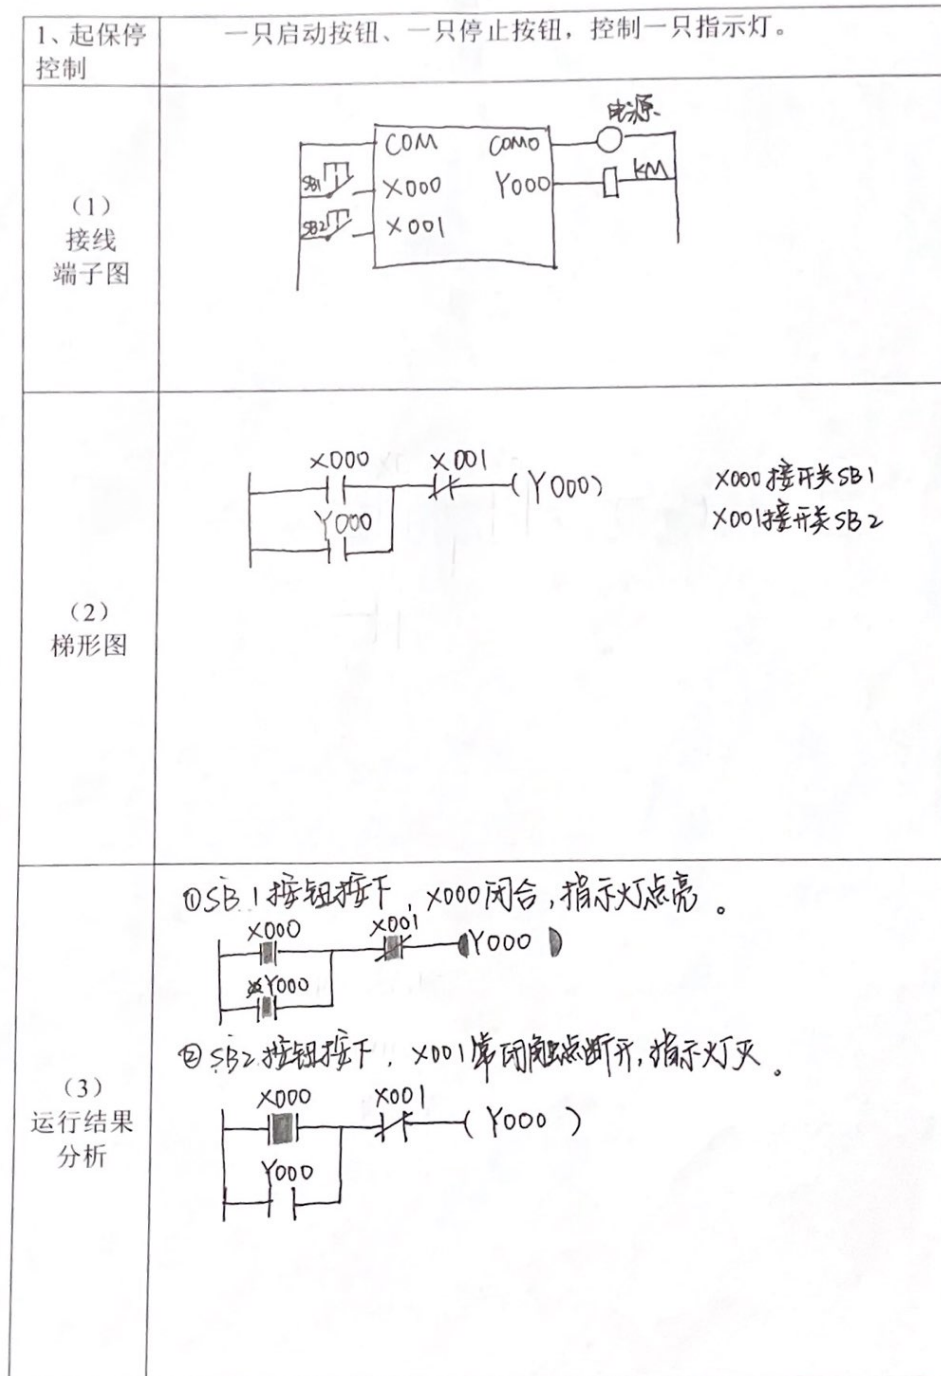 1、起保停
控制
一只启动按钮、一只停止按钮，控制一只指示灯。
(1)
接线
端子图
电源
COM
COM0
SB1
X000
Y000
KM
SB2
X001
(2)
梯形图
X000
X001
(Y000)
Y000
X000接开关SB1
X001接开关SB2
(3)
运行结果
分析
①SB1按钮按下，X000闭合，指示灯点亮。
X000
X001
Y000
Y000
②SB2按钮按下，X001常闭触点断开，指示灯灭。
X000
X001
(Y000)
Y000